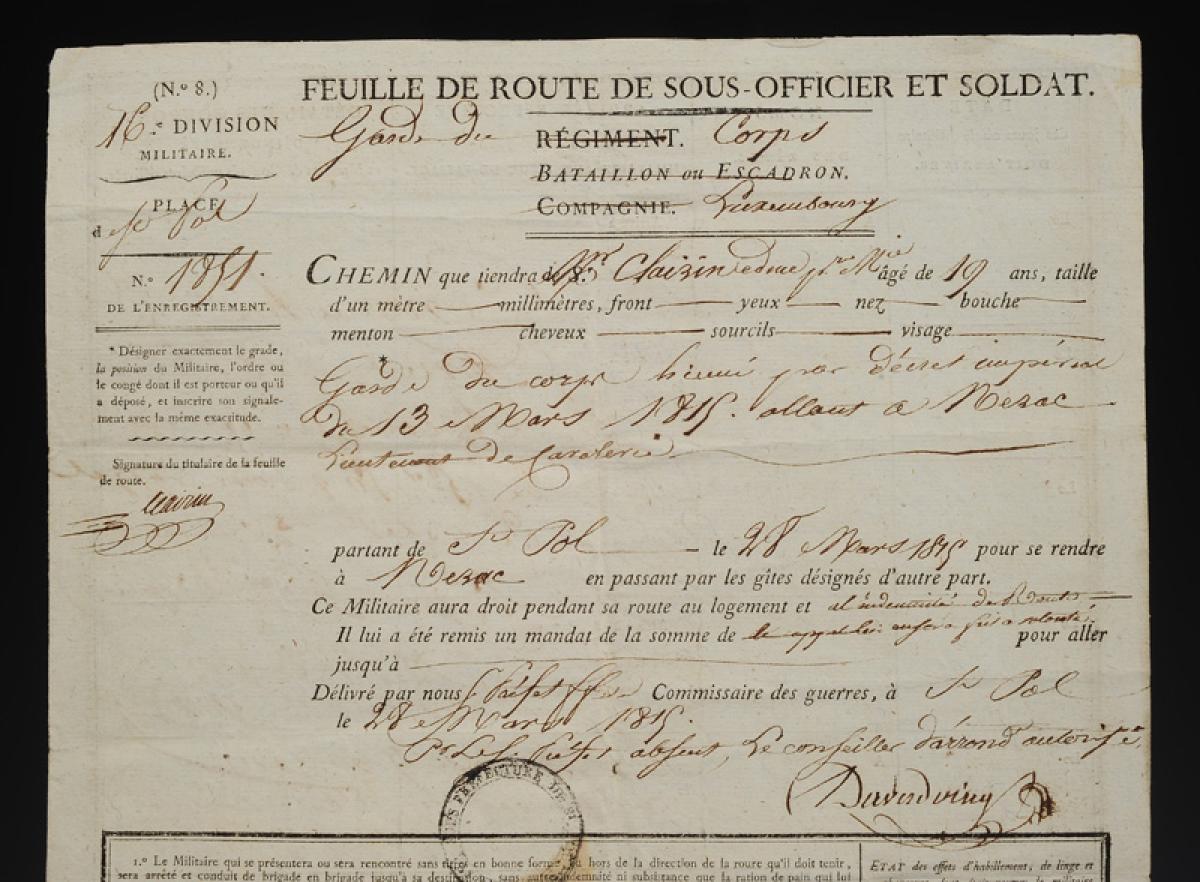 (N.º 8.)
16.e DIVISION
MILITAIRE.
PLACE
d St Pol
N.º 1851.
DE L'ENREGISTREMENT.
* Désigner exactement le grade,
la position du Militaire, l'ordre ou
le congé dont il est porteur ou qu'il
a déposé, et inscrire son signale-
ment avec la même exactitude.
Signature du titulaire de la feuille
de route.
Clairin
FEUILLE DE ROUTE DE SOUS-OFFICIER ET SOLDAT.
Garde du RÉGIMENT. Corps
BATAILLON ou ESCADRON.
COMPAGNIE. Luxembourg
CHEMIN que tiendra Mr âgé de 19 ans, taille
d'un mètre millimètres, front yeux nez bouche
menton cheveux sourcils visage
* Garde du corps par décret impérial
du 13 Mars 1815. allant à Nerac
Lieutenant de Cavalerie.
partant de St Pol le 28 Mars 1815 pour se rendre
à Nerac en passant par les gîtes désignés d'autre part.
Ce Militaire aura droit pendant sa route au logement et a l'indemnité de Route
Il lui a été remis un mandat de la somme de pour aller
jusqu'à
Délivré par nous Commissaire des guerres, à St Pol
le 28 Mars 1815.
Pr Le S. Préfet absent, Le conseiller d'arrondt autorisé,
SOUS PREFECTURE DE
1.º Le Militaire qui se présentera ou sera rencontré sans titres en bonne forme, ou hors de la direction de la route qu'il doit tenir,
sera arrêté et conduit de brigade en brigade jusqu'à sa destination, sans autre indemnité ni subsistance que la ration de pain qui lui
ETAT des effets d'habillement, de linge et